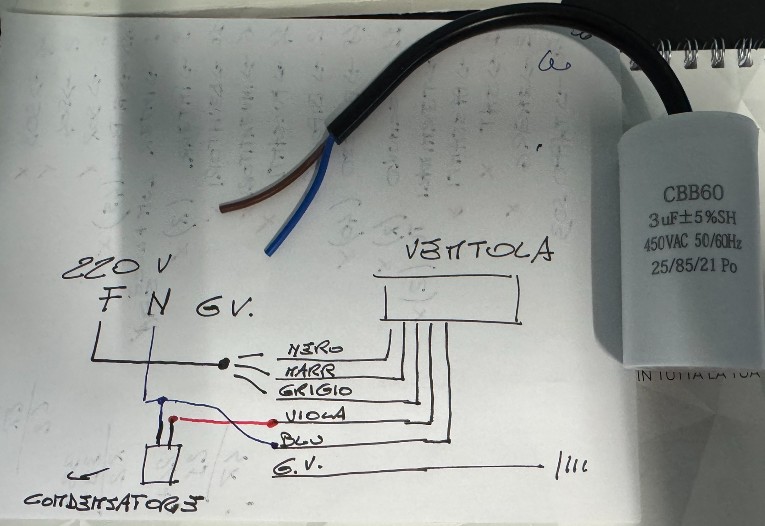 CBB60
3uF±5%SH
450VAC 50/60Hz
25/85/21 Po
VENTOLA
220 V
F N G V.
NERO
MARR
GRIGIO
VIOLA
BLU
G.V.
CONDENSATORE
IN TUTTA LA TUA